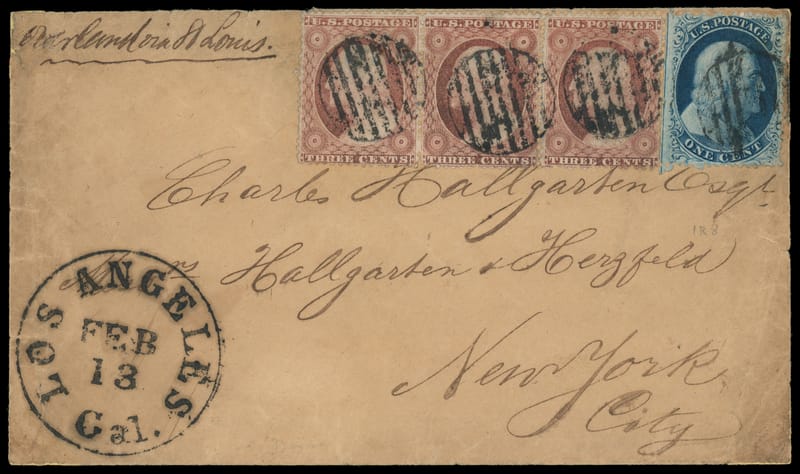 Overland via St Louis.
U.S. POSTAGE U.S. POSTAGE U.S. POSTAGE U.S. POSTAGE
THREE CENTS THREE CENTS THREE CENTS ONE CENT
Charles Hallgarten Esqr.
1R8
Hallgarten & Herzfeld
New York
City
LOS ANGELES
FEB
13
Cal.